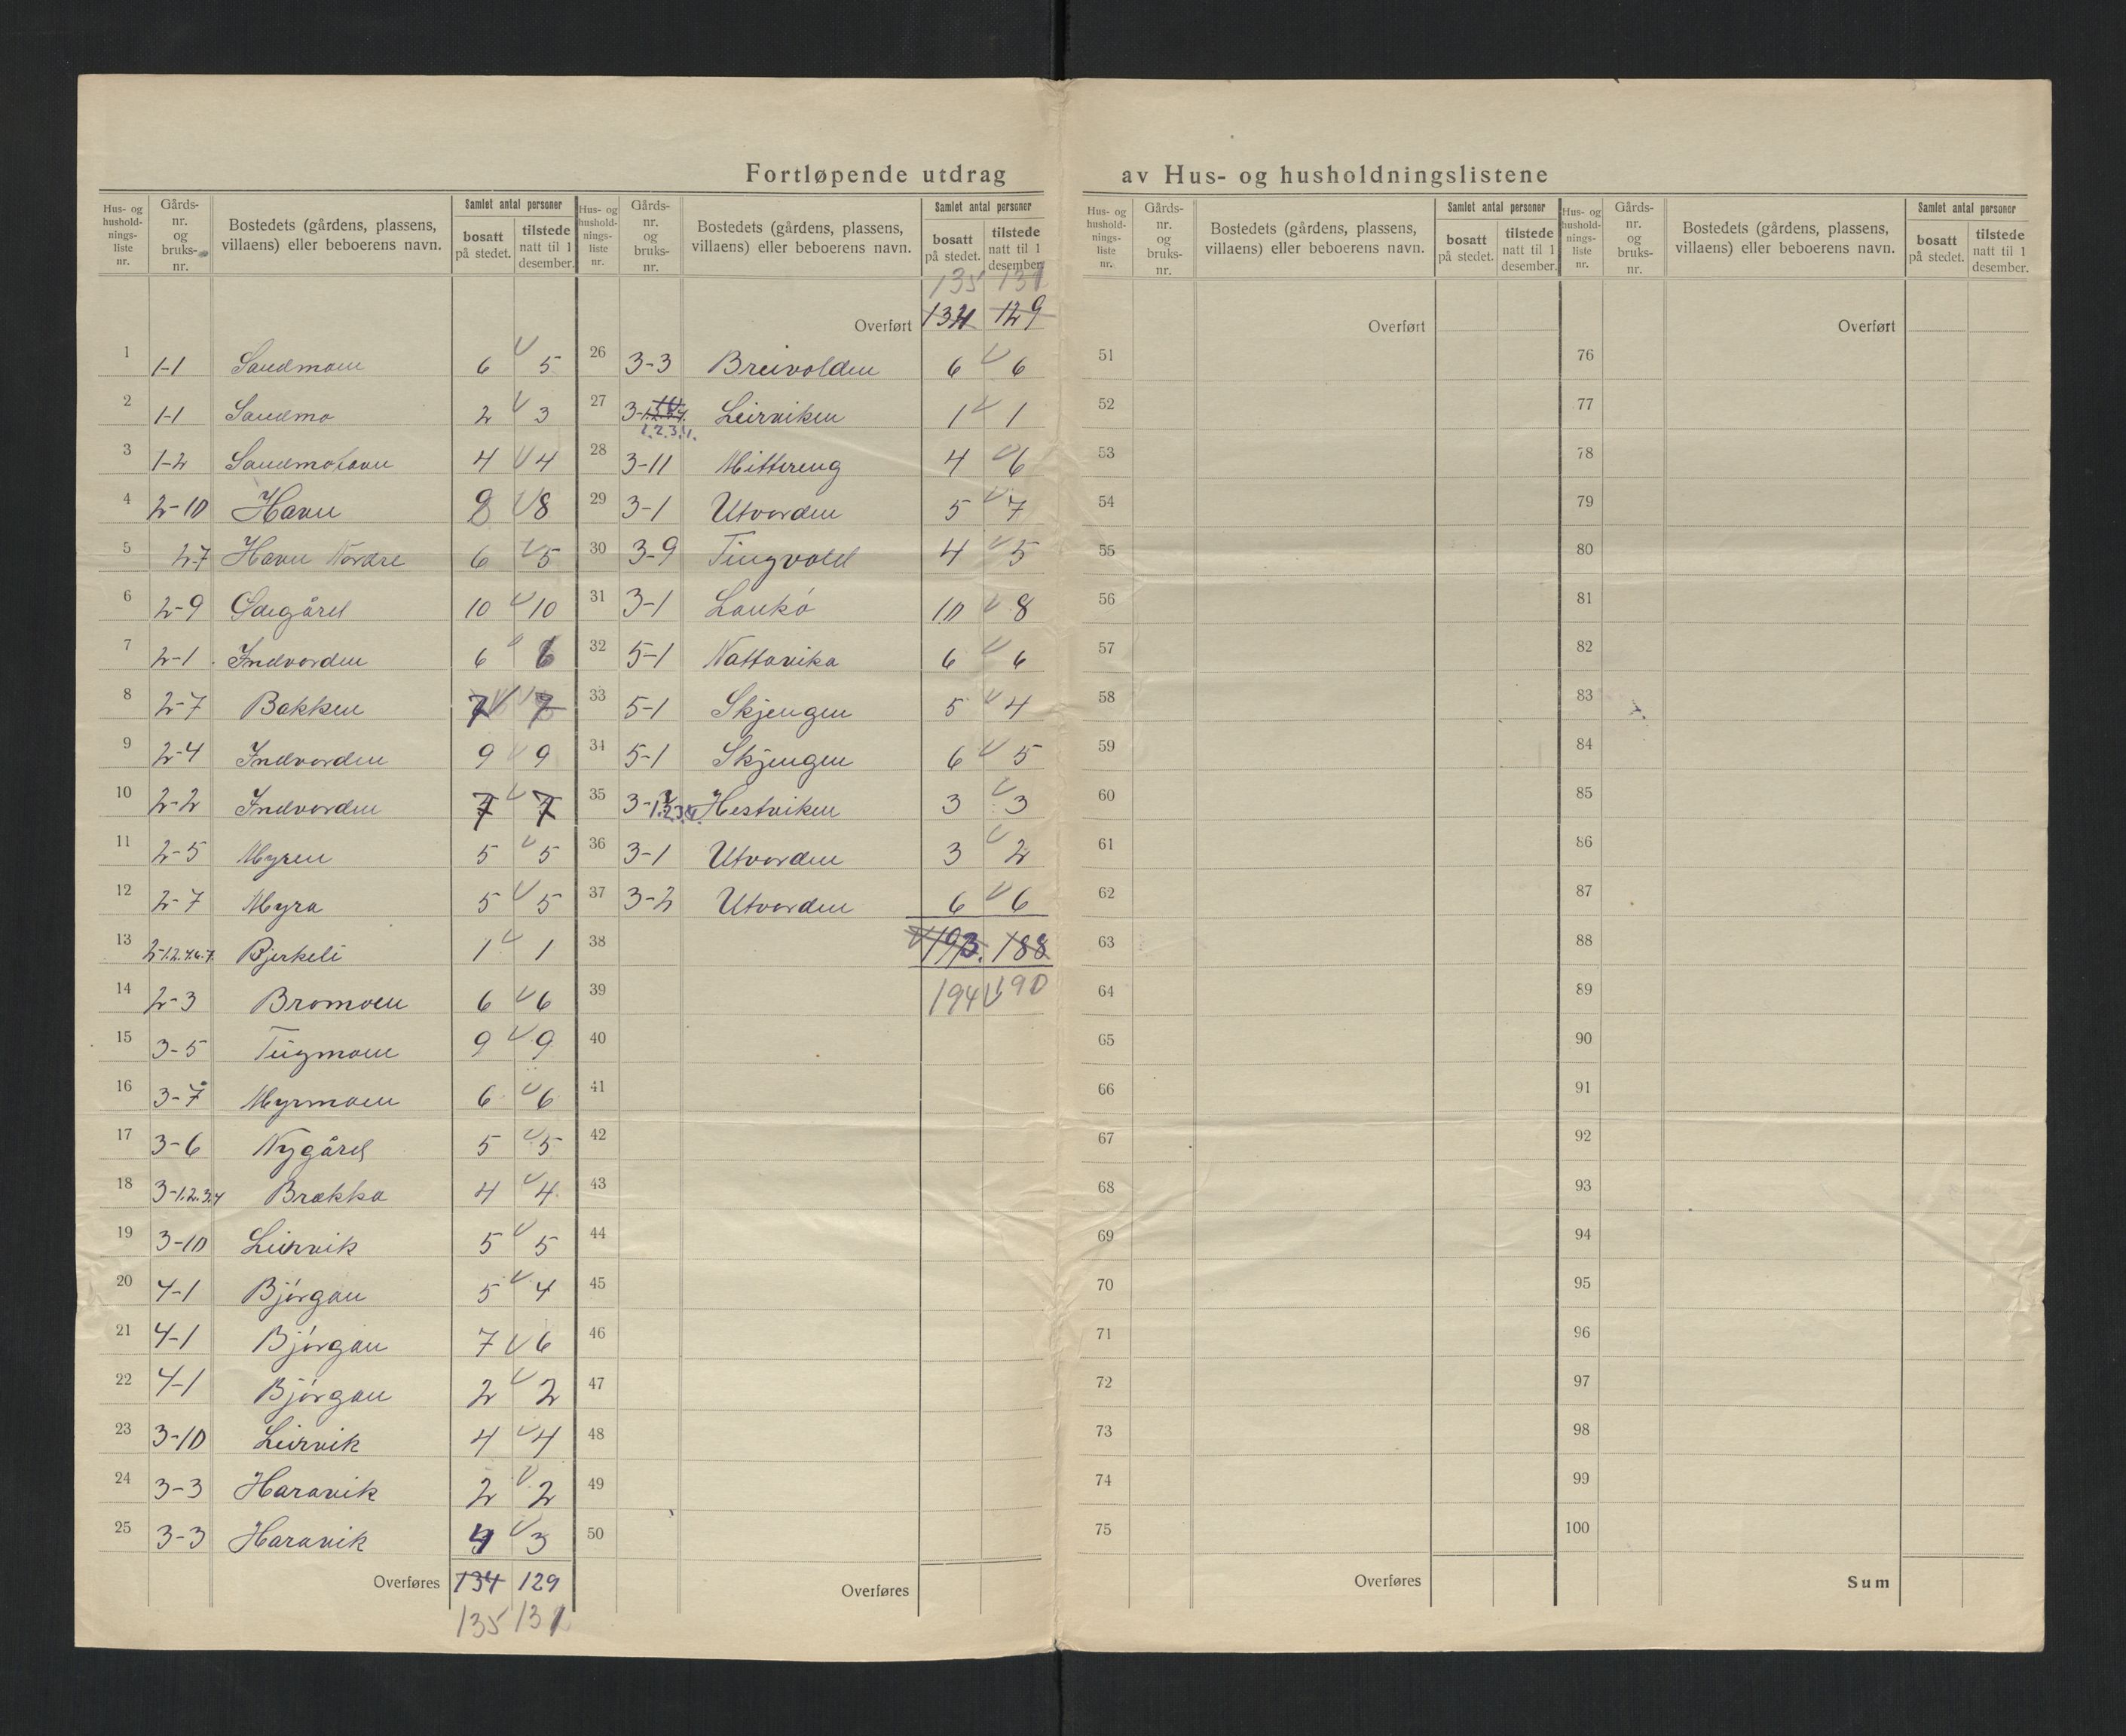 Fortløpende utdrag av Hus- og husholdningslistene
Hus- og hushold- nings- liste nr. | Gårds- nr. og bruks- nr. | Bostedets (gårdens, plassens, villaens) eller beboerens navn. | Samlet antal personer | bosatt på stedet. | tilstede natt til 1 desember.
1 1-1 Sandmoen 6 5
2 1-1 Sandmo 2 3
3 1-2 Sandmohavn 4 4
4 2-10 Havn 8 8
5 2-7 Havn Nordre 6 5
6 2-9 Ødegård 10 10
7 2-1 Indvorden 6 6
8 2-7 Bakken 7 7
9 2-4 Indvorden 9 9
10 2-2 Indvorden 7 7
11 2-5 Myren 5 5
12 2-7 Myra 5 5
13 2-1.2.4.6.7. Bjerkeli 1 1
14 2-3 Bromoen 6 6
15 3-5 Tingmoen 9 9
16 3-7 Myrmoen 6 6
17 3-6 Nygård 5 5
18 3-1.2.3.4 Brækka 4 4
19 3-10 Leirvik 5 5
20 4-1 Bjørgan 5 4
21 4-1 Bjørgan 7 6
22 4-1 Bjørgan 2 2
23 3-10 Leirvik 4 4
24 3-3 Haravik 2 2
25 3-3 Haravik 4 3
Overføres 134 129
135 131
Hus- og hushold- nings- liste nr. | Gårds- nr. og bruks- nr. | Bostedets (gårdens, plassens, villaens) eller beboerens navn. | Samlet antal personer | bosatt på stedet. | tilstede natt til 1 desember.
135 131
Overført 134 129
26 3-3 Breivolden 6 6
27 3-1.2.3.4. Leirviken 1 1
28 3-11 Mittereng 4 6
29 3-1 Utvorden 5 7
30 3-9 Tingvold 4 5
31 3-1 Laukø 10 8
32 5-1 Nattavika 6 6
33 5-1 Skjengen 5 4
34 5-1 Skjengen 6 5
35 3-1.2.3.4. Hestviken 3 3
36 3-1 Utvorden 3 2
37 3-2 Utvorden 6 6
38 193. 188
39 194 190
40
41
42
43
44
45
46
47
48
49
50
Overføres
Hus- og hushold- nings- liste nr. | Gårds- nr. og bruks- nr. | Bostedets (gårdens, plassens, villaens) eller beboerens navn. | Samlet antal personer | bosatt på stedet. | tilstede natt til 1 desember.
Overført
51
52
53
54
55
56
57
58
59
60
61
62
63
64
65
66
67
68
69
70
71
72
73
74
75
Overføres
Hus- og hushold- nings- liste nr. | Gårds- nr. og bruks- nr. | Bostedets (gårdens, plassens, villaens) eller beboerens navn. | Samlet antal personer | bosatt på stedet. | tilstede natt til 1 desember.
Overført
76
77
78
79
80
81
82
83
84
85
86
87
88
89
90
91
92
93
94
95
96
97
98
99
100
Sum